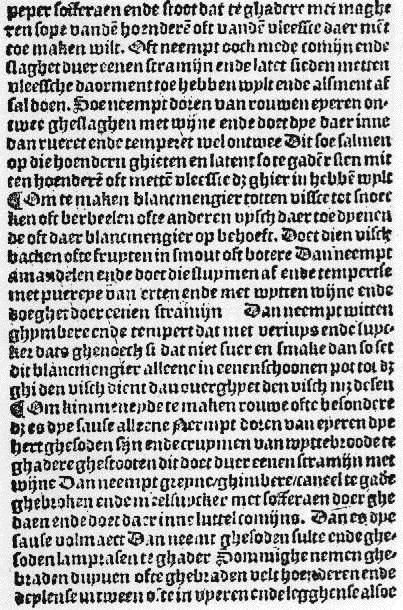 peper soffraen ende stoot dat te ghadere met maghe
ren sope vandẽ hoenderẽ oft vandẽ vleessce daer mẽt
toe maken wilt. Oft neempt oock mede comijn ende
slaghet duer eenen stramijn ende latet sieden metten
vleessche daorment toe hebben wylt ende alsment af
sal doen. Soe neempt doren van rouwen eyeren on-
twee gheslaghen met wijne ende doet dye daer inne
dan rueret ende temperet wel ontwee Dit soe salmen
op die hoenderen ghieten ende latent so te gadẽr sien mit
ten hoenderẽ oft mettẽ vleessce dz ghier in hebbẽ wylt
¶ Om te maken blancmengier totten vissce tot snoec
ken oft berbeelen ofte anderen vysch daer toe dyenen
de oft daer blancmengier op behoeft. Doet dien visch
backen ofte fruyten in smout oft botere Dan neempt
amandelen ende doet die sluymen af ende tempertse
met puereye van erten ende met wytten wijne ende
doeghet doer eenen stramijn Dan neempt witten
ghymbere ende tempert dat met veriuys ende suyc-
ker dats ghenoech si dat niet suer en smake dan so set
dit blancmengier alleene in eenen schoonen pot tot dz
ghi den visch dient dan ouerghyet den visch mz desen
¶ Om kimmeneyde te maken rouwe ofte besondere
dz es dye sause alleene Neempt doren van eyeren dye
hert ghesoden sijn ende cruymen van wyttebroode te
ghadere ghestooten dit doet duer eenen stramijn met
wijne Dan neempt greyne/ghimbere/caneel te gade
ghebroken ende meelsuycker met soffraen doer ghe
daen ende doet daer inne luttel comijns. Dan es dye
sause volmaect Dan neemt ghesoden sulte ende ghe-
soden lamprasen te ghader Sommighe nemen ghe-
braden duyuen ofte ghebraden velt hoenderen ende
deylense uutween ofte in vyeren ende legghense alsoe